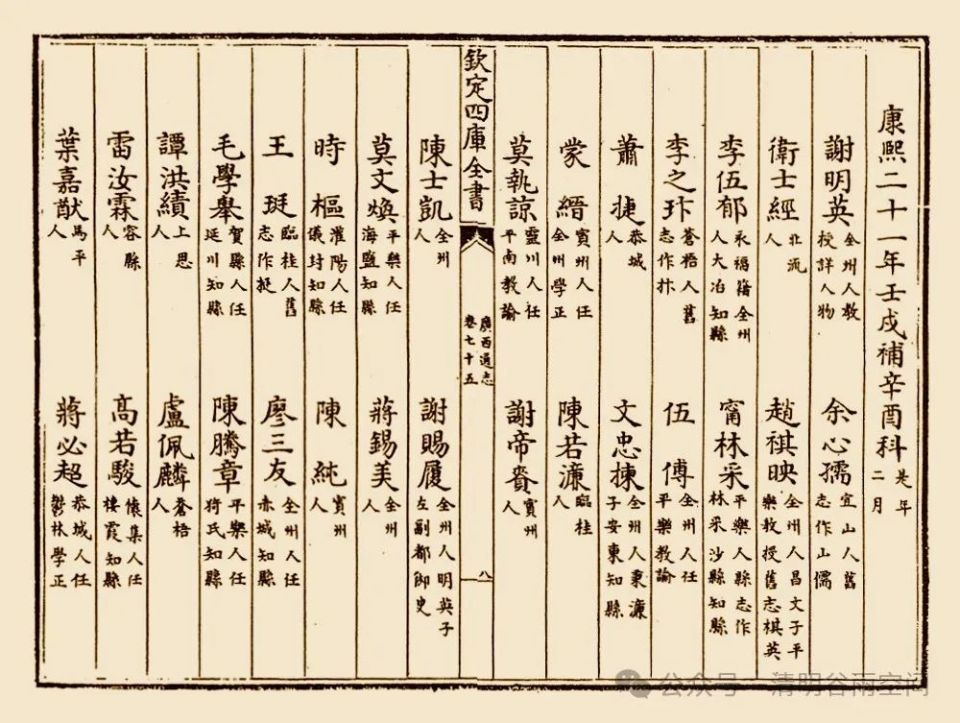 康熙二十一年壬戌補辛酉科是年二月
謝明英全州人教授詳人物 余心孺宜山人舊志作山儒
衛士經北流人 趙祺映全州人昌文子平樂教授舊志棋英
李伍郁永福籍全州人大冶知縣 甯林采平樂人縣志作林采沙縣知縣
李之玣蒼梧人舊志作抃 伍傅全州人任平樂教諭
蕭捷恭城人 文忠揀全州人秉濂子安東知縣
蒙縉賓州人任全州學正 陳若濂臨桂人
莫執諒靈川人任平南教諭 謝帝賚賓州人
欽定四庫全書 廣西通志卷七十五 八
陳士凱全州人 謝賜履全州人明英子左副都御史
莫文煥平樂人任海鹽知縣 蔣錫美全州人
時樞灌陽人任儀封知縣 陳純賓州人
王珽臨桂人舊志作挺 廖三友全州人任赤城知縣
毛學舉賀縣人任延川知縣 陳騰章平樂人任猗氏知縣
譚洪績上思人 盧佩麟蒼梧人
雷汝霖容縣人 高若駿懷集人任棲霞知縣
葉嘉猷馬平人 蔣必超恭城人任鬱林學正
公众号·清明谷雨空间